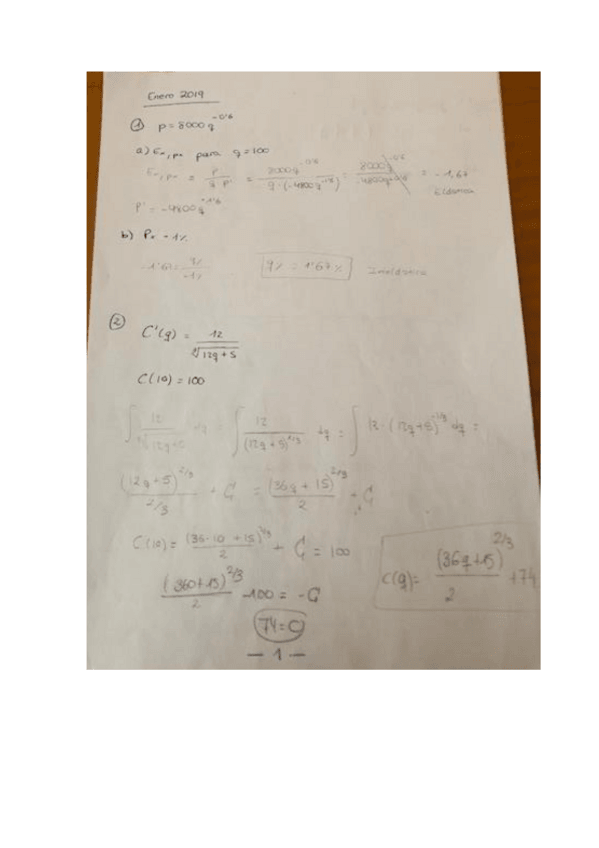 Enero 2019
① p = 8000 q^-0'6
a) Ex,px para q = 100
Ex,px = p / q·p' = 8000q^-0'6 / q·(-4800q^-1'6) = 8000q / = -1,67
p' = -4800q^-1'6 Elástica
b) Px = -1%
-1'67 = q% / -1% q% = 1'67% Inelástica
②
C'(q) = 12 / ∛(12q+5)
C(10) = 100
∫ 12 / ∛(12q+5) dq = ∫ 12 / (12q+5)^1/3 dq = ∫ 12·(12q+5)^-1/3 dq =
(12q+5)^2/3 / 2/3 + C = (36q+15)^2/3 / 2 + C
C(10) = (36·10+15)^2/3 / 2 + C = 100
(360+15)^2/3 / 2 - 100 = -C C(q) = (36q+15)^2/3 / 2 + 74
74 = C
— 1 —